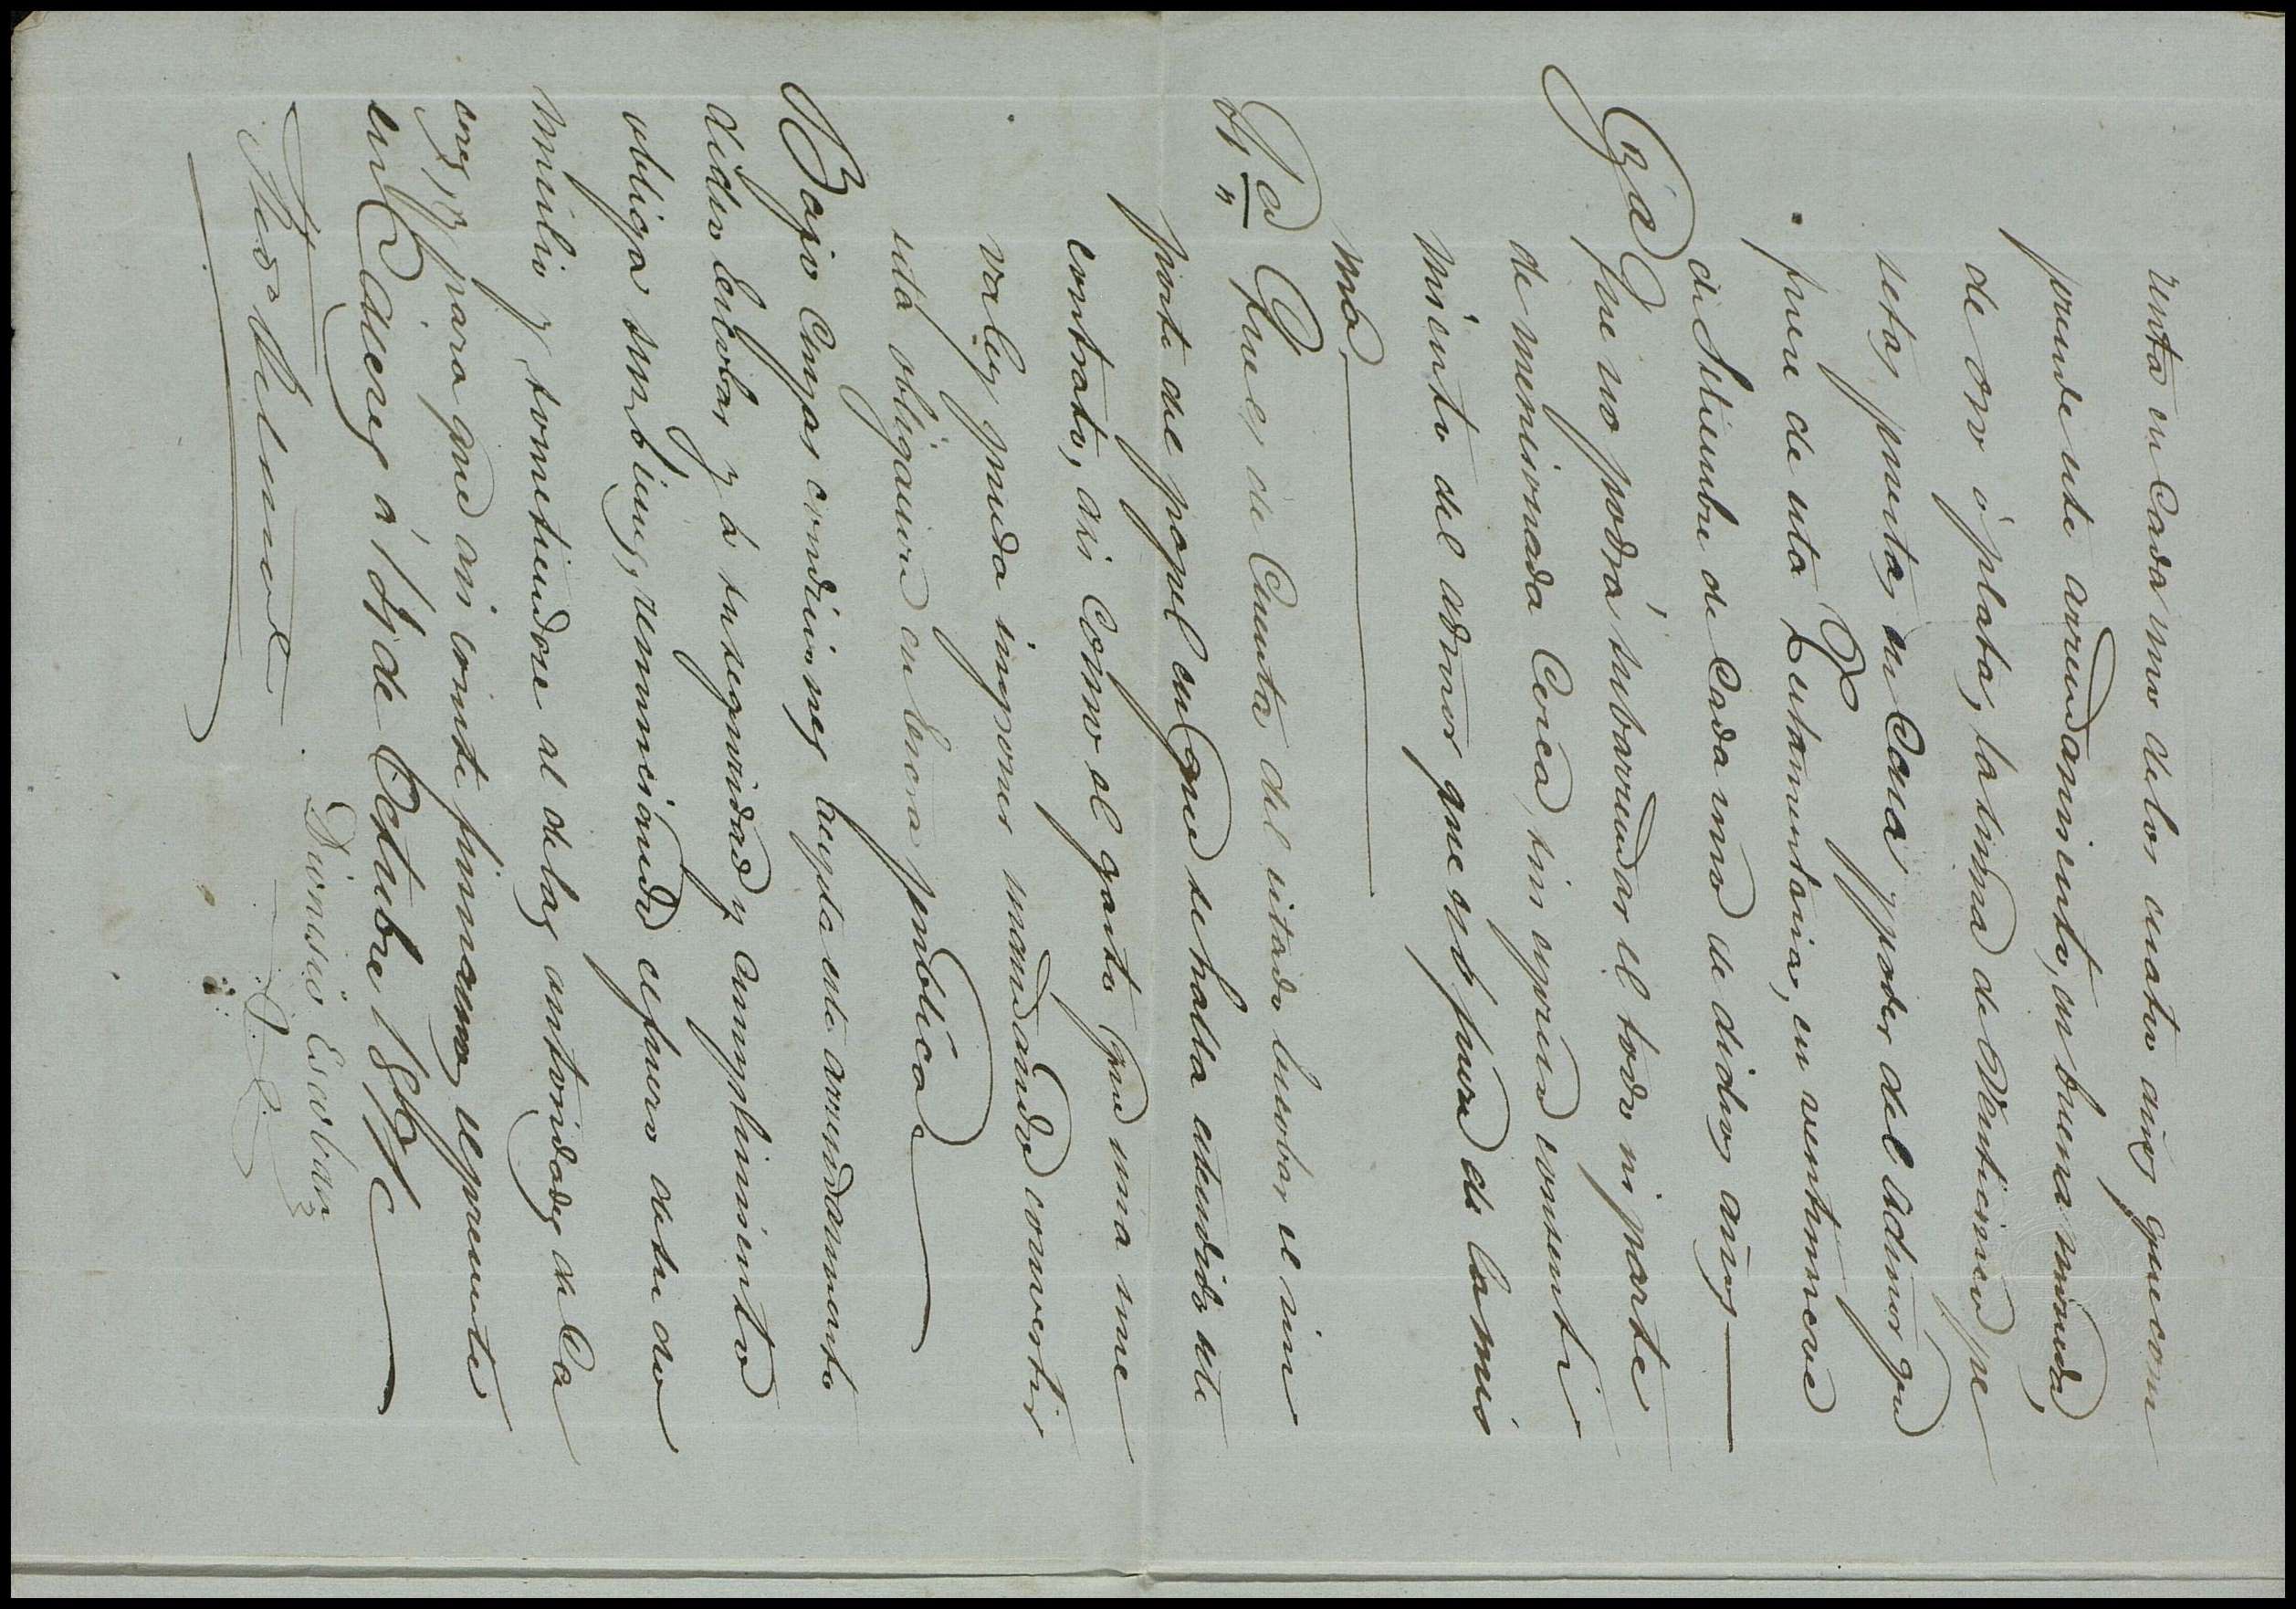 renta en Cada uno delos cuatro años que com
prende este arrendamiento, en buena moneda
de oro ó plata, la suma de Veinticinco pe
setas puestas en Casa y poder del Admor que
fuere de esta Testamentaria, en veintinueve
de Setiembre de Cada uno de dichos años
Que no podrá subarrendar el todo ni parte
de mencionada Cerca, sin espreso consenti
miento del admor que es ó fuere de la mis
ma
Que es de Cuenta del citado Escobar el im
porte del papel en que se halla estendido este
contrato, asi Como el gasto que una me
ra ley pueda imponer mandando convertir
esta obligacion en Escra publica
Bajo Cuyas condiciones acepta este arrendamiento
dicho Escobar y á su seguridad y Cumplimiento
obliga sus bienes, renunciando el fuero de su do
micilio y sometiendose al de las autoridades de Ca
ceres, y para que asi conste firmamos el presente
en Cáceres á 1º de Octubre 187
Dionisio Escobar